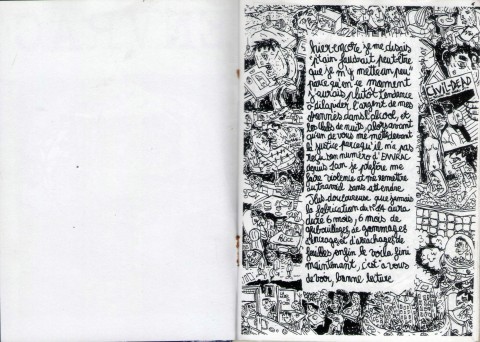 hier encore je me disais
"j'cain faudrait peut-être
que je m'y mette un peu"
parce qu'en ce moment
j'aurais plutôt tendance
à dilapider l'argent de mes
abonnés dans l'alcool, et
les clubs de nuits, alors avant
qu'un de vous me mette devant
la justice parce qu'il n'a pas
reçu son numéro d'
depuis 1 an je préfère me
faire violence et me remettre
au travail sans attendre
Plus douloureuse que jamais
la fabrication du n°14 aura
duré 6 mois, 6 mois de
gribouillages de gommages
d'encrages et d'arrachages de
feuilles enfin le voila fini
maintenant, c'est à vous
de voir, bonne lecture
CIVIL-DEAD